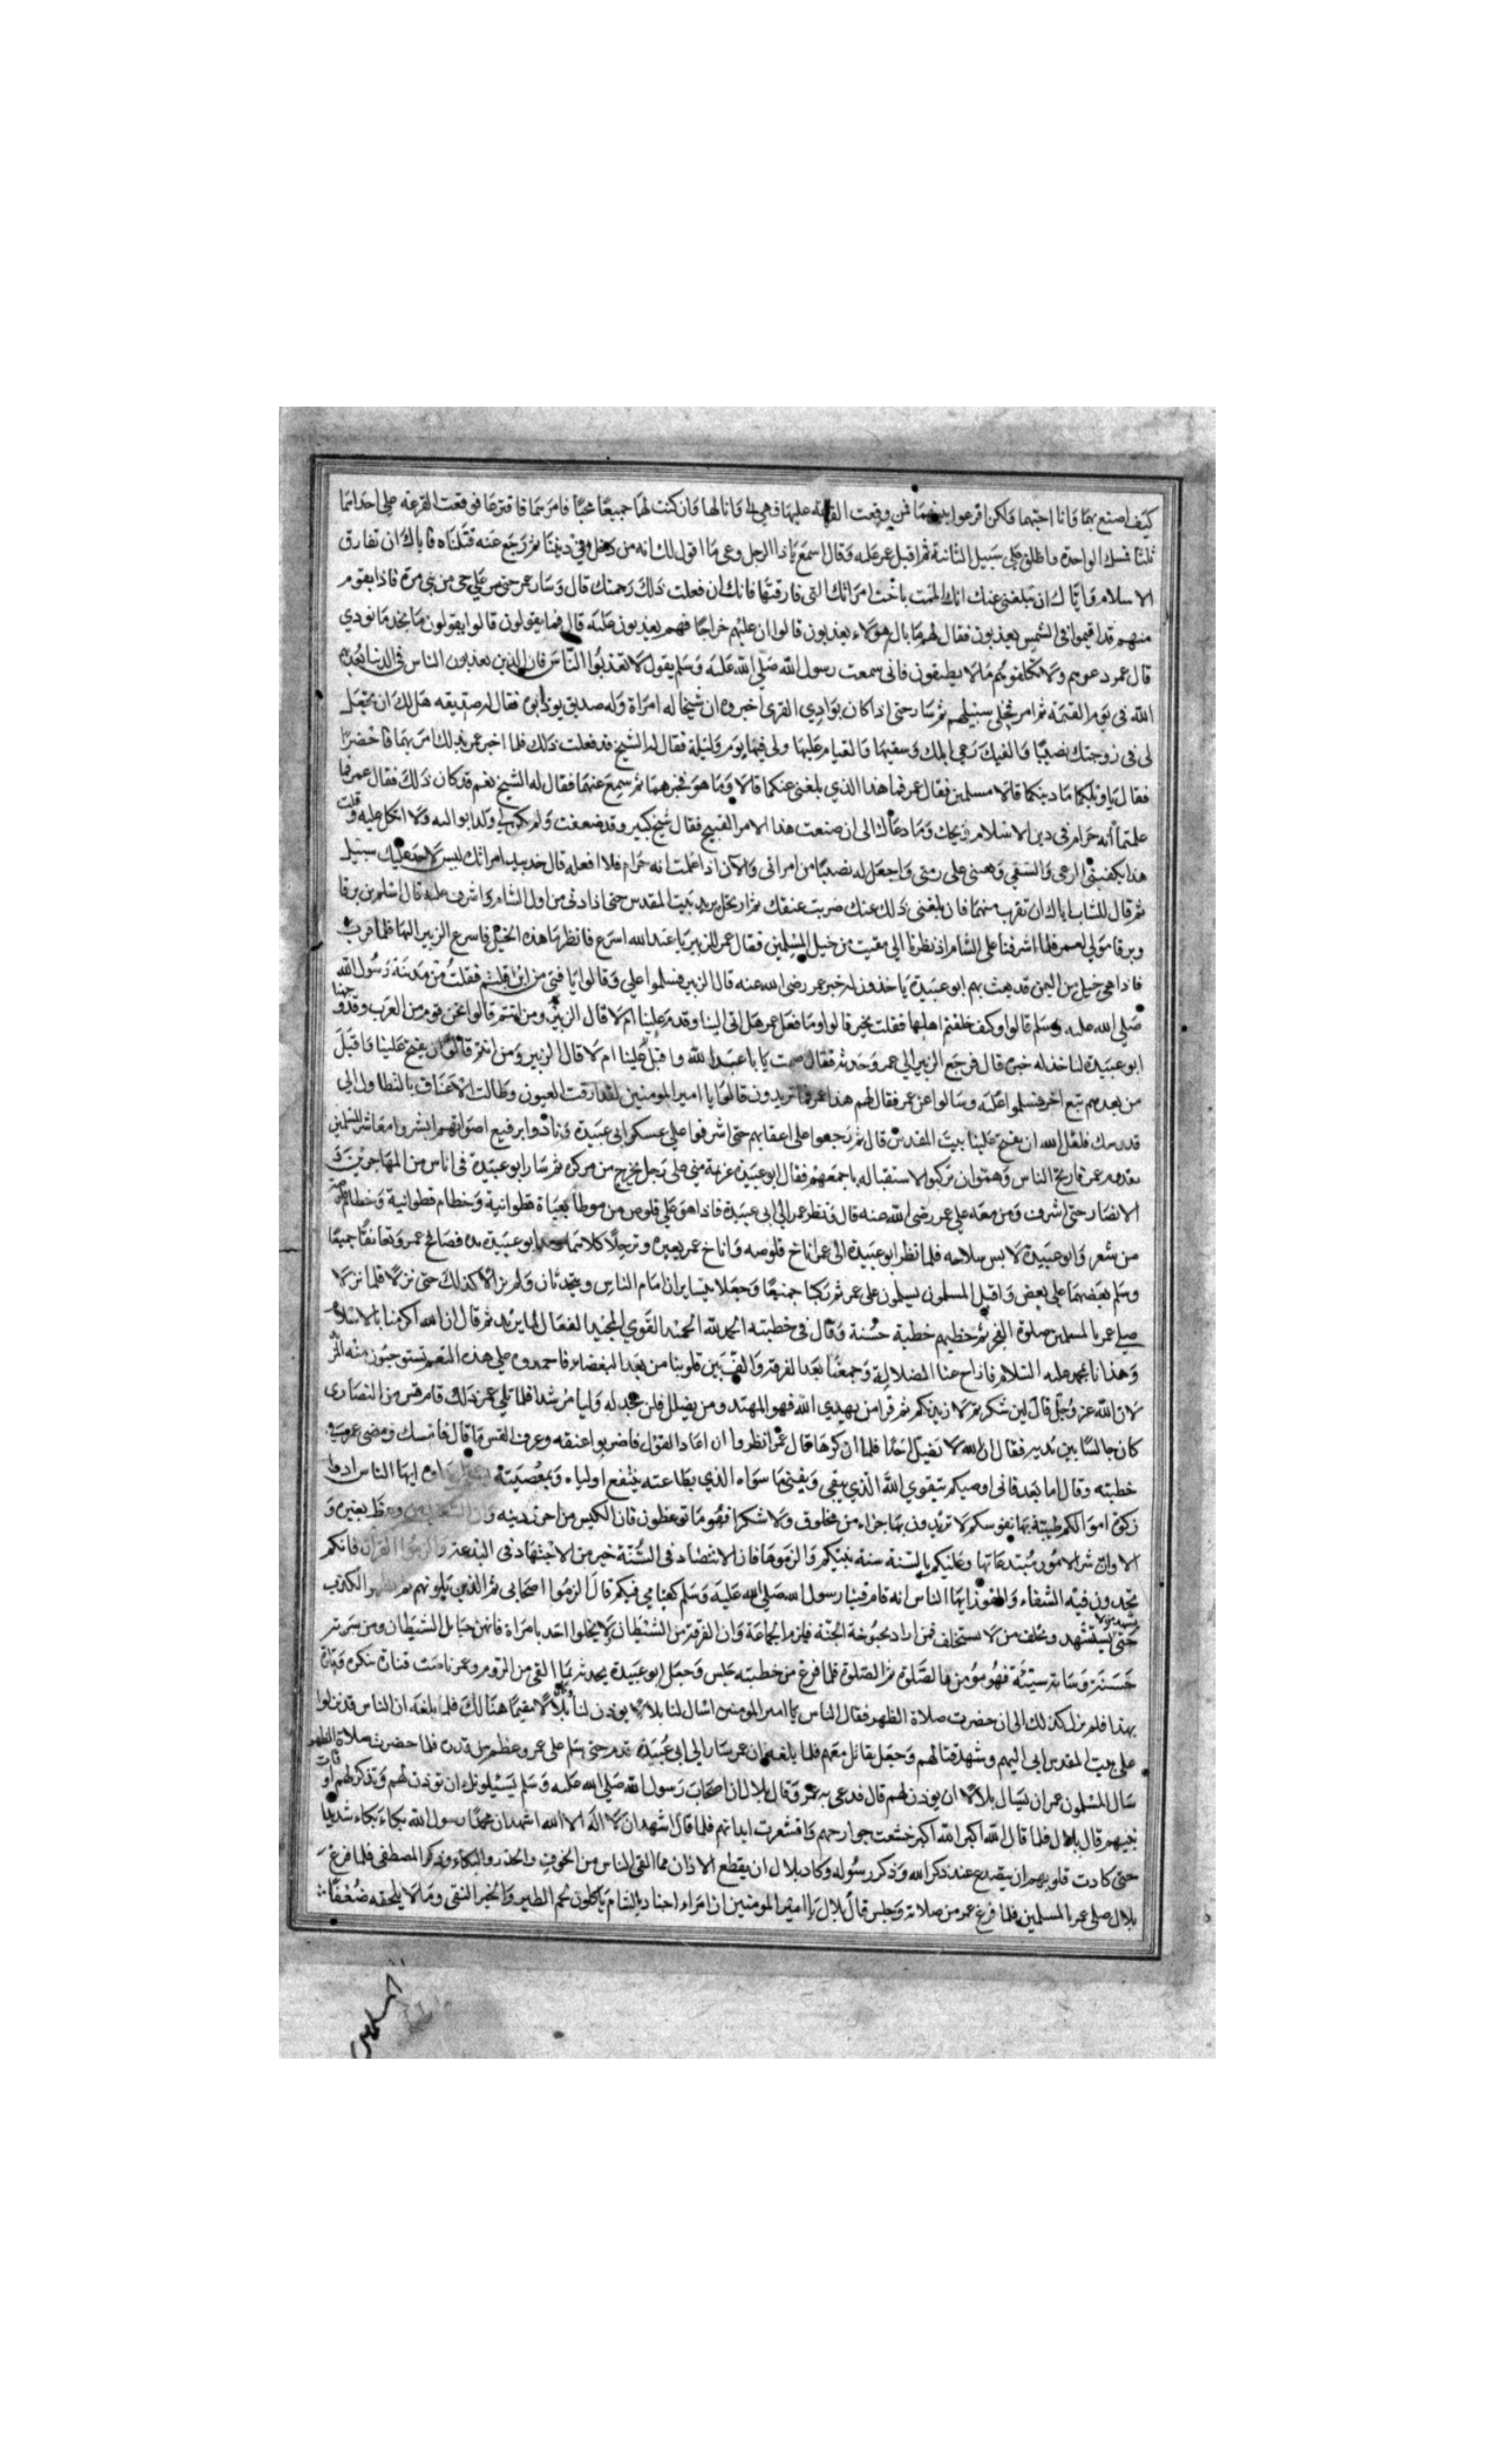 كيف اصنع بهما وانا احبهما ولكن اقرعوا بينهما فمن وقعت القرعة عليها فهي لي وانا لها وان كنت لهما جميعًا محبًا فامرهما فاقترعا فوقعت القرعة على احداهما
ثلثا فمسك الواحدة واطلق على سبيل الثانية ثم اقبل عمر عليه وقال اسمع يا ذا الرجل وعي ما اقول لك انه من دخل في ديننا ثم رجع عنه قتلناه فاياك ان تفارق
الاسلام واياك ان يبلغني عنك انك الممت باخت امراتك التي فارقتها فانك ان فعلت ذلك رجمتك قال وسار عمر حتى مر على حي من بني مرة فاذا بقوم
منهم قد اقيموا في الشمس يعذبون فقال لهم ما بال هؤلاء يعذبون قالوا ان عليهم خراجًا فهم يعذبون عليه قال فما يقولون قالوا يقولون ما نجد ما نودي
قال عمر دعوهم ولا تكلفوهم ما لا يطيقون فاني سمعت رسول الله صلى الله عليه وسلم يقول لا تعذبوا الناس فان الذين يعذبون الناس في الدنيا يعذبهم
الله في يوم القيمة ثم امر فخلى سبيلهم ثم سار حتى اذا كان بوادي القرى اخبروه ان شيخا له امراة وله صديق يوداه فقال له صديقه هل لك ان تجعل
لي في زوجتك نصيبًا واكفيك رعي ابلك وسقيها والقيام عليها ولي فيها يوم وليلة فقال له الشيخ قد فعلت ذلك فلما اخبر عمر بذلك امر بهما فاحضرا
فقال يا ويلكما ما دينكما قالا مسلمين فقال عمر فما هذا الذي بلغني عنكما قالا وما هو فخبرهما ثم سمع عنهما فقال له الشيخ نعم قد كان ذلك فقال عمر فما
علمتما انه حرام في دين الاسلام ويحك وما دعاك الى ان صنعت هذا الامر القبيح فقال شيخ كبير وقد ضعفت ولم يكن لي ولد اتوا اليه ولا اتكل عليه وقلت
هذا يكفيني الرعي والسقي ويعينني على ابلي واجعل له نصيبًا من امراتي والآن اذا علمت انه حرام فلا افعله قال خذ بيد امراتك ليس لاحد عليك سبيل
ثم قال للشاب اياك ان تقرب منهما فان بلغني ذلك عنك ضربت عنقك ثم ارتحل يريد بيت المقدس حتى اذا دنى من اول الشام واشرف عليه قال اسلم بن برقا
وبرقا مولى لعمر فلما اشرفنا على الشام اذ نظرنا الى مقيت من خيل المسلمين فقال عمر للزبير يا عبد الله اسرع فانظر ما هذه الخيل فاسرع الزبير اليها فلما قرب
فاذا هي خيل من اليمن قد بعث بهم ابو عبيدة ياخذون له خبر عمر رضي الله عنه قال الزبير فسلموا علي وقالوا يا فتى من اين اقبلت فقلت من مدينة رسول الله
صلى الله عليه وسلم قالوا وكيف خلفتم اهلها فقلت بخير قالوا وما فعل عمر هل اتى الينا وقدم علينا ام لا قال الزبير ومن انتم قالوا نحن قوم من العرب وقد وجهنا
ابو عبيدة لناخذ له خبره قال فرجع الزبير الى عمر وحدثه فقال صمت يا با عبد الله واقبل علينا ام لا قال الزبير ومن انتم قالوا ان يفتح علينا واقبل
من بعدهم تبع اخر فسلموا عليه وسالوا عن عمر فقال لهم هذا عمر فما تريدون قالوا يا امير المومنين لقد ارقت العيون وطالت الاعناق بالتطاول الى
قدومك فلعل الله ان يفتح علينا بيت المقدس قال ثم رجعوا على اعقابهم حتى اشرفوا على عسكر ابي عبيدة ونادوا برفيع اصواتهم ابشروا معاشر المسلمين
بقدوم عمر فارتج الناس وهموا ان يركبوا لاستقباله باجمعهم فقال ابو عبيدة عزمة مني على رجل يخرج من مركزه ثم سار ابو عبيدة في اناس من المهاجرين و
الانصار حتى اشرف ومن معه على عمر رضي الله عنه قال ونظر عمر الى ابي عبيدة فاذا هو على قلوص من موطا بعباة قطوانية وخطام قطوانية وخطام قلوصه
من شعر وابو عبيدة لابس سلاحه فلما نظر ابو عبيدة الى عمر اناخ قلوصه واناخ عمر بعيره وترجلا كلاهما ومد ابو عبيدة يده فصافح عمر وتعانقا جميعًا
وسلم بعضهما على بعض واقبل المسلمون يسلمون على عمر ثم ركبا جميعًا وجعلا يتسايران امام الناس ويتحدثان ولم يزالا كذلك حتى نزلا فلما نزلا
صلى عمر بالمسلمين صلاة الفجر ثم خطبهم خطبة حسنة وقال في خطبته الحمد لله الحميد القوي المجيد الفعال لما يريد ثم قال ان الله اكرمنا بالاسلام
وهدانا بمحمد عليه السلام فازاح عنا الضلالة وجمعنا بعد الفرقة والف بين قلوبنا من بعد البغضاء فاحمدوه على هذه النعم تستوجبون منه المزيد
لان الله عز وجل قال لين شكرتم لازيدنكم ثم قرا من يهدي الله فهو المهتد ومن يضلل فلن تجد له وليا مرشدا فلما تلي عمر ذلك قام قس من النصارى
كان جالسًا بين يديه فقال ان الله لا يضل احدًا فلما ان كررها قال عمر انظروا ان اعاد القول فاضربوا عنقه وعرف القس ما قال فامسك ومضى عمر في
خطبته وقال اما بعد فاني اوصيكم بتقوي الله الذي يبقى ويفنى ما سواه الذي بطاعته ينتفع اولياه وبمعصيته ايها الناس ادوا
زكوة اموالكم طيبة بها نفوسكم لا تريدون بها جزاء من مخلوق ولا شكرا فهو ما توعظون فان الكيس من احرز دينه وان السعيد من وعظ بغيره و
الا وان شر الامور مبتدعاتها وعليكم بالسنة سنة نبيكم والزموها فان الاقتصاد في السنة خير من الاجتهاد في البدعة والزموا القرآن فانكم
تجدون فيه الشفاء والفوز ايها الناس انه قام فينا رسول الله صلى الله عليه وسلم كقيامي فيكم قال الزموا اصحابي ثم الذين يلونهم ثم يظهر الكذب
حتى يشهد من لا يستشهد ويحلف من لا يستحلف فمن اراد بحبوحة الجنة فليلزم الجماعة وان الفرقة من الشيطان ولا يخلوا احد بامراة فانهن حبايل الشيطان ومن سرته
حسنته وساته سيئته فهو مؤمن والصلوة ثم الصلوة فلما فرغ من خطبته جلس وجعل ابو عبيدة يحدثه بما القى من الروم وعمر
بهذا فلم يزل كذلك الى ان حضرت صلاة الظهر فقال الناس يا امير المومنين اسال لنا بلالا يوذن لنا وكان بلالا مقيمًا هنالك فلما بلغه ان الناس قد نزلوا
على بيت المقدس اتى اليهم وشهد قتالهم وجعل يقاتل معهم فلما بلغه ان عمر سار الى ابي عبيدة قدم حتى سلم على عمر وعظم من قدره فلما حضرت صلاة الظهر
سال المسلمون عمر ان يسال بلالا ان يوذن لهم قال فدعى به عمر وقال يا بلال ان اصحاب رسول الله صلى الله عليه وسلم يسئلونك ان توذن لهم وتذكرهم اوقات
نبيهم قال بلال فلما قال الله اكبر الله اكبر خشعت جوارحهم واقشعرت ابدانهم فلما قال اشهد ان لا اله الا الله اشهد ان محمدًا رسول الله بكاء بكاء شديدًا
حتى كادت قلوبهم ان يتصدع عند ذكر الله وذكر رسوله وكاد بلال ان يقطع الاذان مما القى الناس من الخوف والحذر والبكاء وذكر المصطفى فلما فرغ
بلال صلى عمر بالمسلمين فلما فرغ عمر من صلاته وجلس قال بلال يا امير المومنين ان امراء اجناد الشام ياكلون لحم الطير والخبز النقي وما لا يلحقه ضعفا
المسلمين